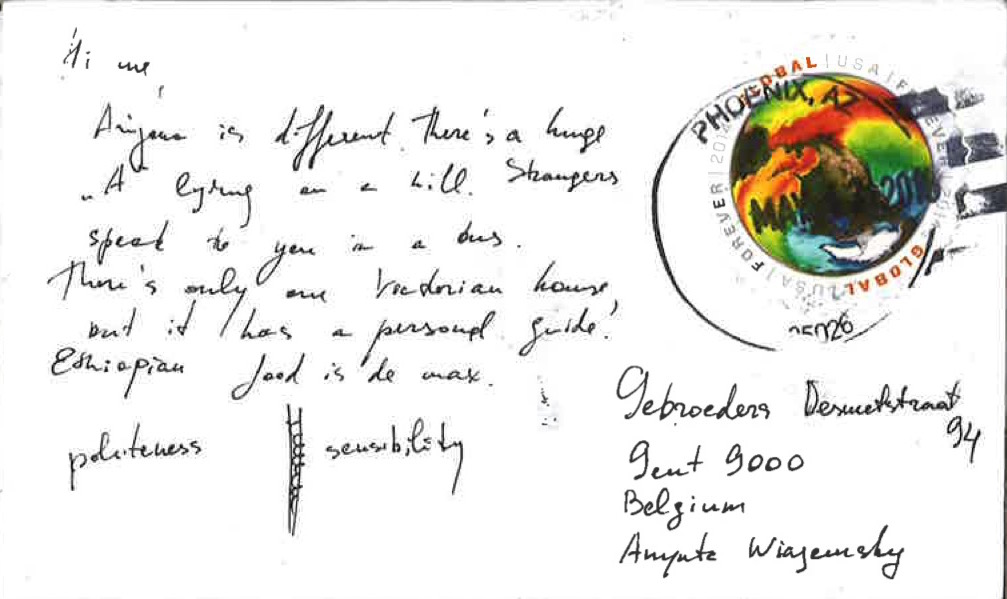 Hi me,
Arizona is different. There's a huge
"A" lying on a hill. Strangers
speak to you in a bus.
There's only one Victorian house,
but it has a personal guide!
Ethiopian food is de max.
politeness sensibility
GLOBAL | USA | FOREVER | 2014
GLOBAL | USA | FOREVER | 2014
PHOENIX, AZ
MAY
Gebroeders Desmetstraat
94
Gent 9000
Belgium
Wiazemsky